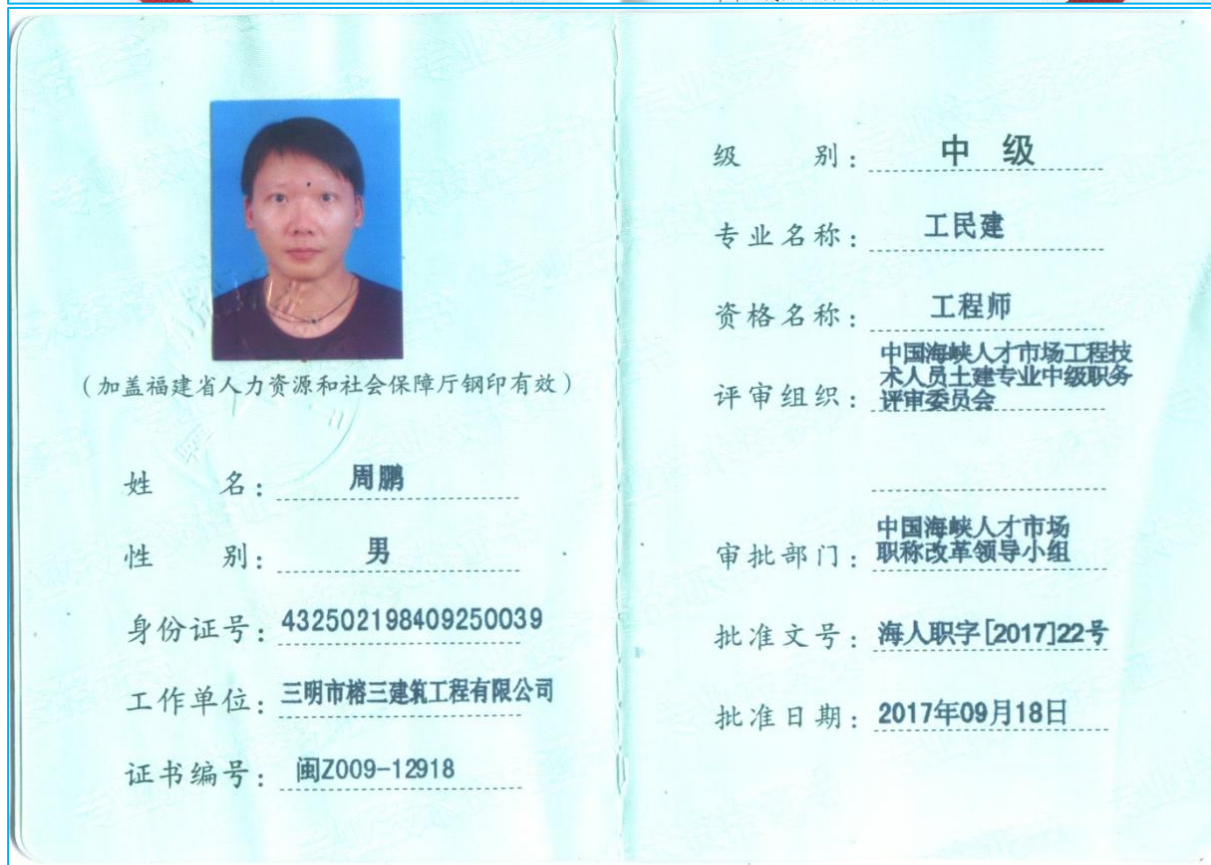 (加盖福建省人力资源和社会保障厅钢印有效)
姓 名: 周鹏
性 别: 男
身份证号: 432502198409250039
工作单位: 三明市榕三建筑工程有限公司
证书编号: 闽Z009-12918
级 别: 中 级
专业名称: 工民建
资格名称: 工程师
评审组织: 中国海峡人才市场工程技
术人员土建专业中级职务
评审委员会
审批部门: 中国海峡人才市场
职称改革领导小组
批准文号: 海人职字[2017]22号
批准日期: 2017年09月18日